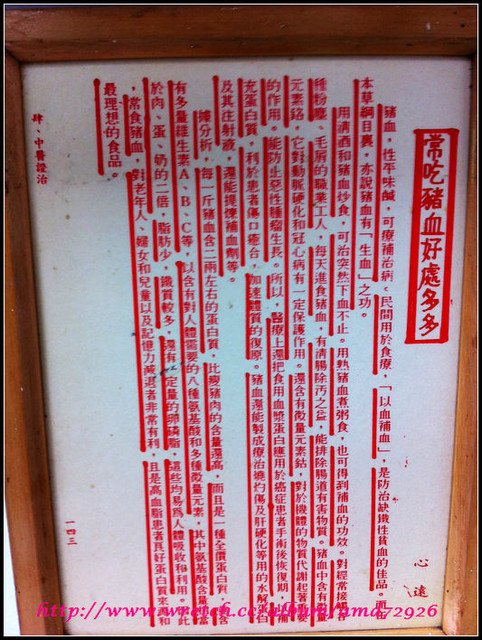 常吃豬血好處多多
心遠
豬血，性平味鹹，可療補治病。民間用於食療，「以血補血」，是防治缺鐵性貧血的佳品。而
本草綱目裏，亦說豬血有「生血」之功。
用清酒和豬血炒食，可治突然下血不止。用熟豬血煮粥食，也可得到補血的功效。對經常接觸
種粉塵、毛屑的職業工人，每天進食豬血，有清腸除污之益，能排除腸道有害物質。豬血中含有微量
元素鉻，它對動脈硬化和冠心病有一定保護作用。還含有微量元素鈷，對於機體的物質代謝起著重要
的作用。能防止惡性腫瘤生長。所以，醫療上還把食用血漿蛋白應用於癌症患者手術後恢復期，補
充蛋白質，利於患者傷口癒合，加速體質的復原。豬血還能製成療治燒灼傷及肝硬化等用的水解蛋白
及其注射液，還能提煉補血劑等。
據分析，每一斤豬血含二兩左右的蛋白質，比瘦豬肉的含量還高，而且是一種全價蛋白質，
有多量維生素A、B、C等，以含有對人體需要的八種氨基酸和多種微量元素，其中氨基酸含量
於肉、蛋、奶的二倍，脂肪少，鐵質較多，還有一定量的卵磷脂，這些均易為人體吸收和利用。
，常食豬血，對老年人、婦女和兒童以及記憶力減退者非常有利，且是高血脂患者良好蛋白質來源和
最理想的食品。
肆、中醫證治
一四三